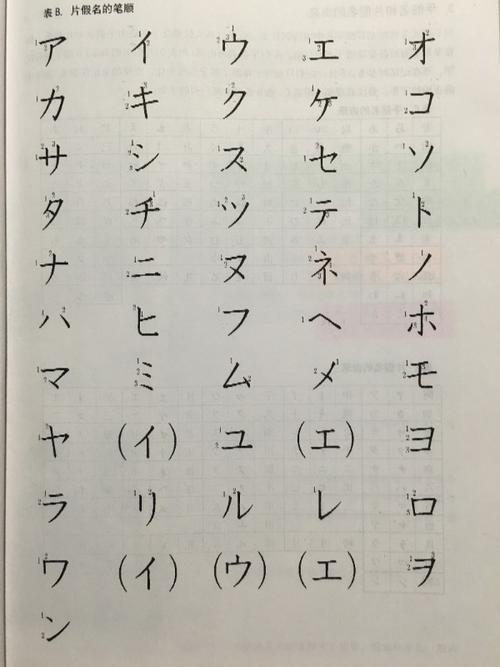 表B. 片假名的笔顺
ア イ ウ エ オ
カ キ ク ケ コ
サ シ ス セ ソ
タ チ ツ テ ト
ナ ニ ヌ ネ ノ
ハ ヒ フ ヘ ホ
マ ミ ム メ モ
ヤ (イ) ユ (エ) ヨ
ラ リ ル レ ロ
ワ (イ) (ウ) (エ) ヲ
ン